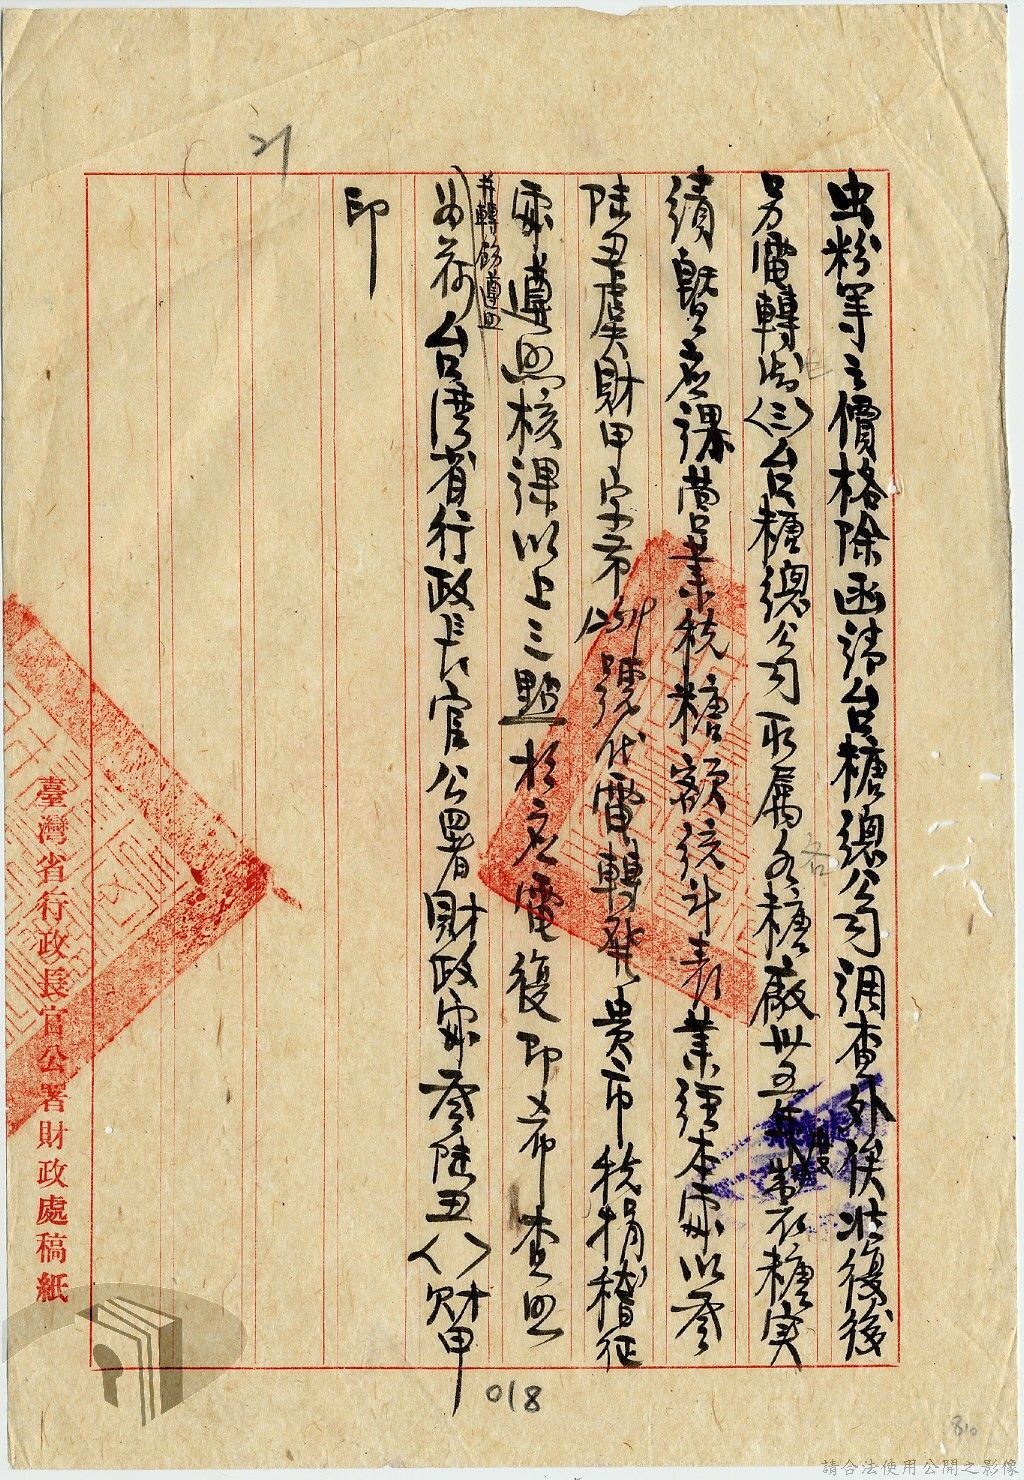 虫粉等之價格除函請台糖總公司調查外俟收復後
另電轉知(三)台糖總公司所屬各糖廠卅五年度製糖实
績暨应課营業税糖額統計表業經本處以叁
陸丑虞財甲字第1259號代電轉發貴市稅捐稽征
處遵照核課以上三點相应電復即希查照
并轉飭遵照
為荷台灣省行政長官公署財政處叁陸丑( )財甲
印
臺灣省行政長官公署財政處稿紙
21
018
810
請合法使用公開之影像